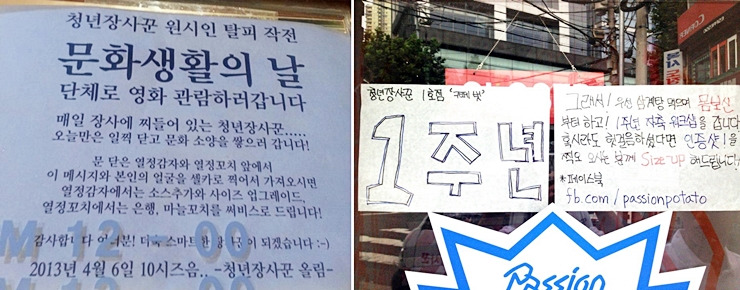 청년장사꾼 원시인 탈피 작전
문화생활의 날
단체로 영화 관람하러갑니다
매일 장사에 찌들어 있는 청년장사꾼.....
오늘만은 일찍 닫고 문화 소양을 쌓으러 갑니다!
문 닫은 열정감자와 열정꼬치 앞에서
이 메시지와 본인의 얼굴을 셀카로 찍어서 가져오시면
열정감자에서는 소스추가와 사이즈 업그레이드,
열정꼬치에서는 은행, 마늘꼬치를 써비스로 드립니다!
M 12 - 00
감사합 다 여러분! 더욱 스마트한 이 되겠습니다 :-)
2013년 4월 6일 10시즈음.. -청년장사꾼 올림-
청년장사꾼 1호점
1주년
그래서! 우선 삼계탕 먹으며 몸보신
부터 하고! 1주년 자축 워크샵을 갑니다
혹시라도 헛걸음하셨다면 인증샷!을
찍어 오시는 분께 Size-up 해드립니다!
*페이스북
fb.com/passionpotato
Passion